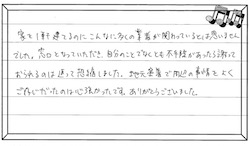 家を1軒建てるのにこんなに多くの業者が関わっているとは思いません
でした。窓口となっていただき、自分のことでなくとも不手際があったら謝って
おられるのには返って恐縮しました。地元業者で周辺の事情をよく
ご存じだったのは心強かったです。ありがとうございました。